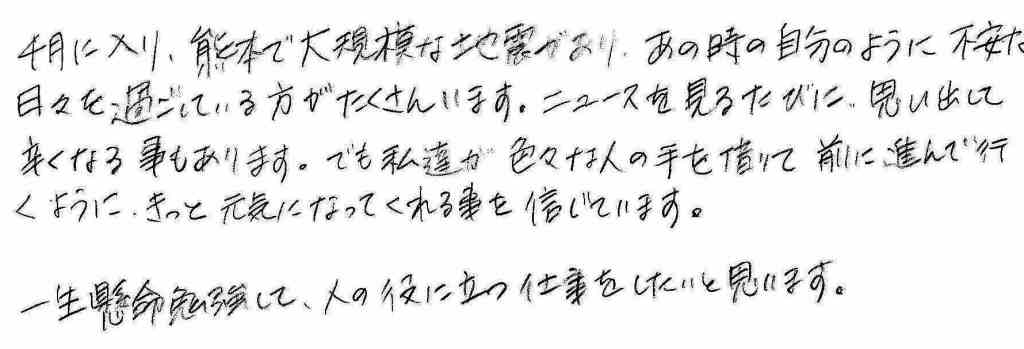 4月に入り、熊本で大規模な地震があり、あの時の自分のように不安な
日々を過ごしている方がたくさんいます。ニュースを見るたびに、思い出して
辛くなる事もあります。でも私達が色々な人の手を借りて前に進んで行
くように、きっと元気になってくれる事を信じています。
一生懸命勉強して、人の役に立つ仕事をしたいと思います。